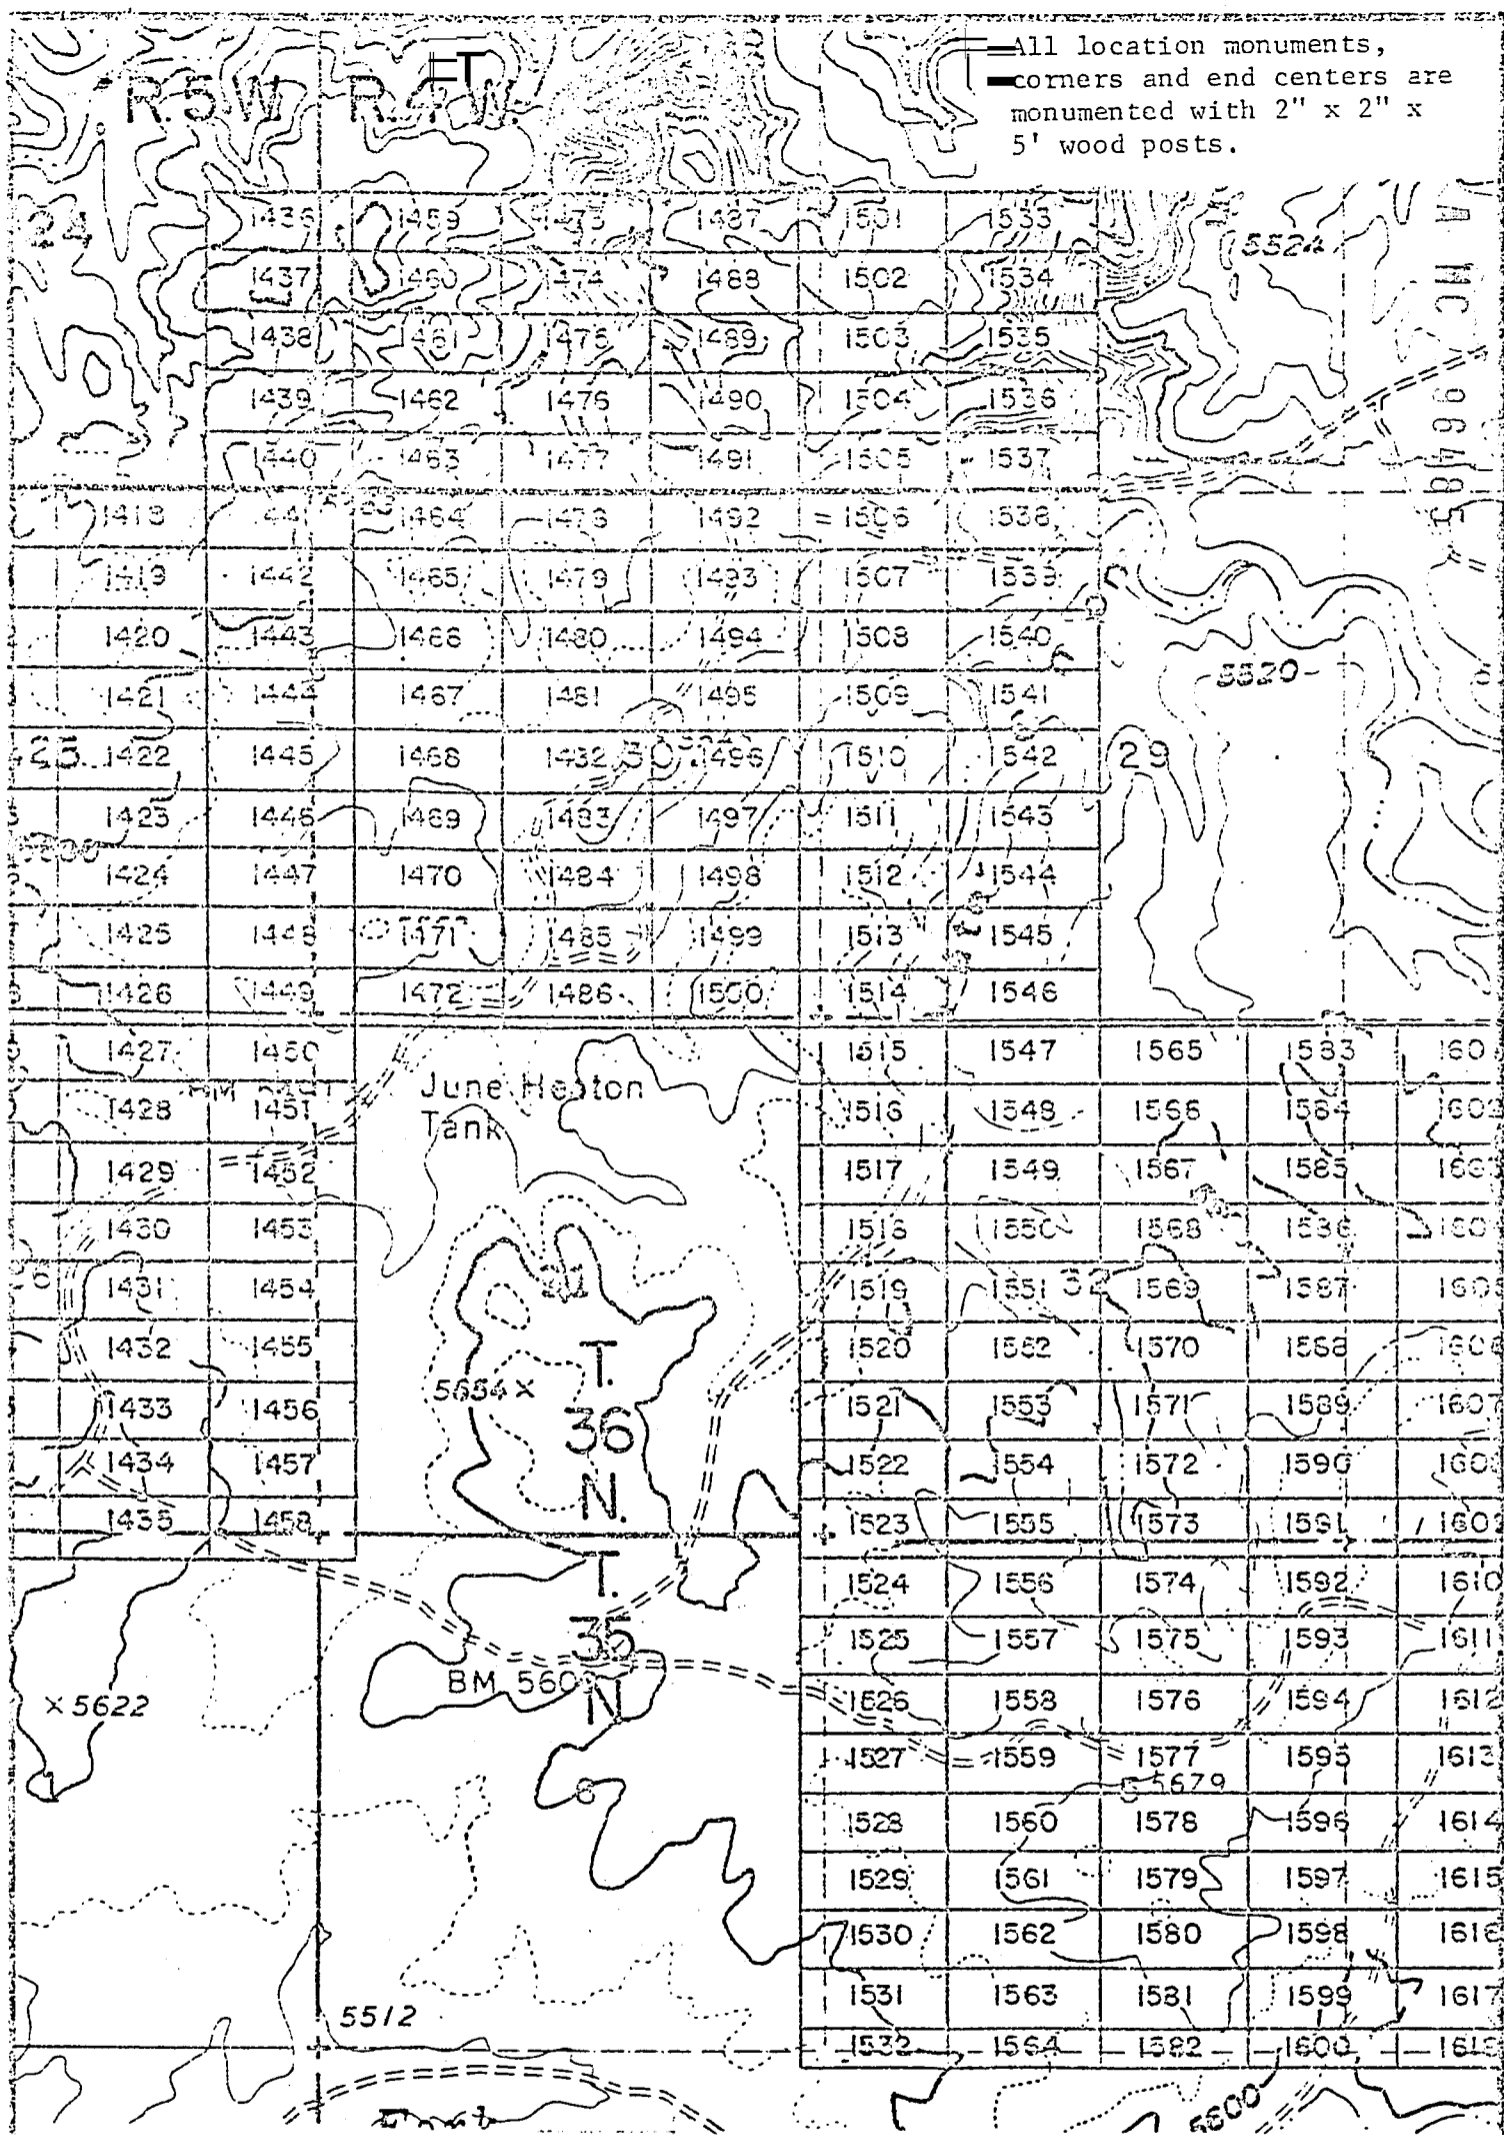 All location monuments,
corners and end centers are
monumented with 2" x 2" x
5' wood posts.
R.5W. R.4W.
24 1436 1459 1473 1487 1501 1533
5524
1437 1460 1474 1488 1502 1534
1438 1461 1475 1489 1503 1535
1439 1462 1476 1490 1504 1536
1440 1463 1477 1491 1505 1537
1418 1464 1478 1492 1506 1538
1419 1442 1465 1479 1493 1507 1539
1420 1443 1466 1480 1494 1508 1540
1421 1444 1467 1481 1495 1509 1541 5520
25 1422 1445 1468 1482 30 1496 1510 1542 29
1423 1446 1469 1483 1497 1511 1543
1424 1447 1470 1484 1498 1512 1544
1425 1448 1471 1485 1499 1513 1545
1426 1449 1472 1486 1500 1514 1546
1427 1450 1515 1547 1565 1583
June Heaton
Tank
1428 1451 1516 1548 1566 1584 1602
1429 1452 1517 1549 1567 1585
1430 1453 1518 1550 1568 1586
1431 1454 1519 1551 32 1569 1587 1605
1432 1455 1520 1552 1570 1588 1606
T.
36
N.
5654 ×
1433 1456 1521 1553 1571 1589 1607
1434 1457 1522 1554 1572 1590
1435 1458 1523 1555 1573 1591
T.
35
N
1524 1556 1574 1592 1610
1525 1557 1575 1593 1611
BM 560
× 5622
1526 1558 1576 1594 1612
1527 1559 1577 1595 1613
5 5679
6
1528 1560 1578 1596 1614
1529 1561 1579 1597 1615
1530 1562 1580 1598 1616
1531 1563 1581 1599 1617
5512
1532 1564 1582 1600 1618
5600